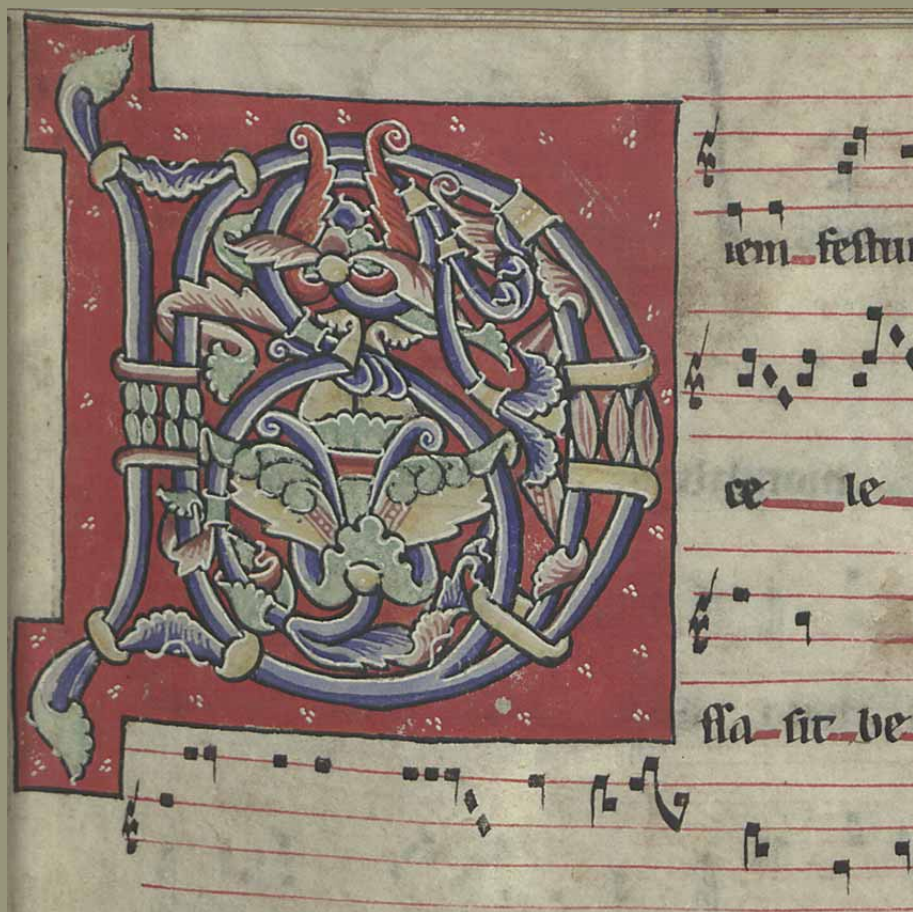 D
iem festum
ce le
ssa sit be